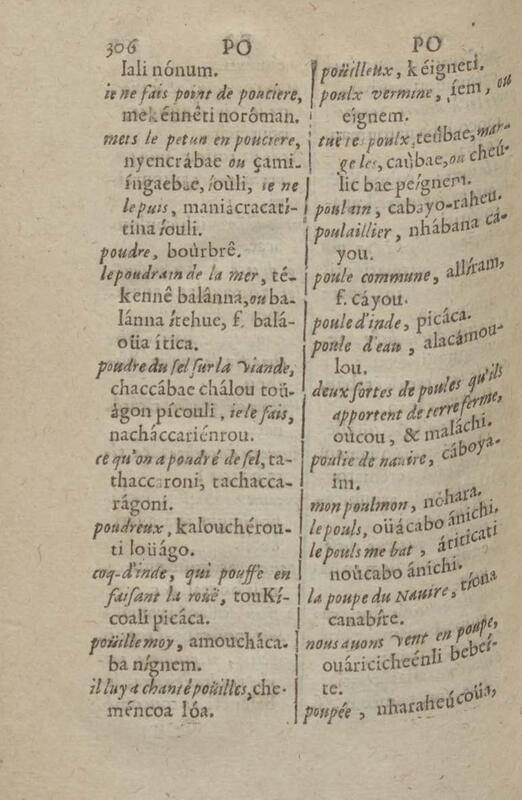 306 PO
Iali nónum.
ie ne fais point de pouciere,
mekénnêti noróman.
mets le petun en pouciere,
nyencrábae ou çami-
íngaebae, íoùli, ie ne
lepuis, maniácracatí-
tina íouli.
poudre, boùrbrê.
lepoudrain de la mer, té-
kennê balánna, ou ba-
lánna ítehue, f. balá-
oüa ítica.
poudre du sel sur la viande,
chaccábae chálou toü-
ágon pícouli, ie le fais,
nacháccariénrou.
ce qu'on a poudré de sel, ta-
thaccaroni, tachacca-
rágoni.
poudreux, kalouchérou-
ti loüágo.
coq-d'inde, qui pousse en
faisant la rouë, touKí-
coali picáca.
poüille moy, amoucháca-
ba nígnem.
il luy a chanté poüilles, che-
méncoa lóa.
PO
poüilleux, kéigneti.
poulx vermine, íem, ou
eígnem.
tuë tes poulx, teúbae, mar-
ge les, caùbae, ou cheú-
lic bae peígnem.
poulain, cabayo-raheu.
poulaillier, nhábana cá-
you.
poule commune, allíram,
f. cáyou.
poule d'inde, picáca.
poule d'eau, alacámou-
lou.
deux sortes de poules qu'ils
apportent de terre ferme,
oùcou, & maláchi.
poulie de nauire, cáboya-
im.
mon poulmon, nóhara.
le pouls, oüácabo ánichi.
le pouls me bat, átiticati
noùcabo ánichi.
la poupe du Nauire, tíona
canabíre.
nous auons vent en poupe,
ouáricicheénli bebeí-
te.
poupée, nharaheúcoüa,